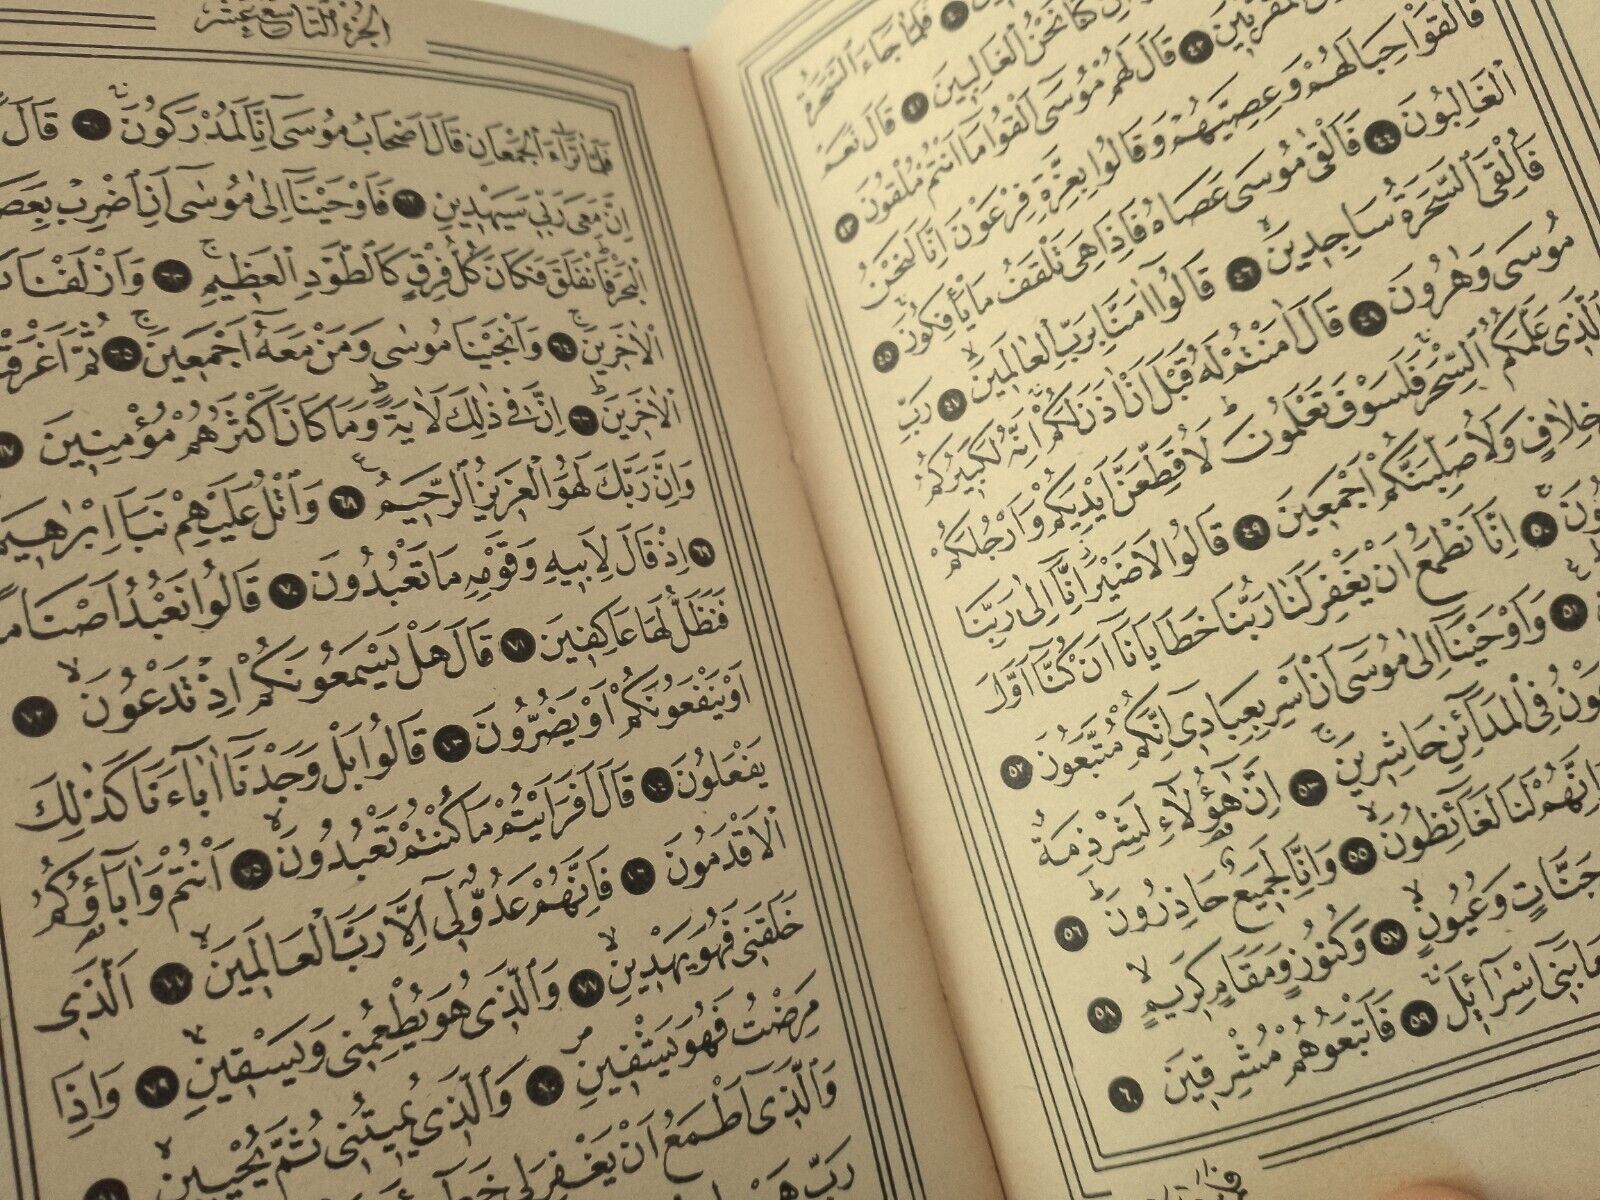 فَلَمَّا جَٓاءَ السَّحَرَةُ
كُنَّا نَحْنُ الْغَالِبِينَ ٤١ قَالَ نَعَمْ
الْمُقَرَّبِينَ ٤٢ قَالَ لَهُمْ مُوسٰٓى اَلْقُوا مَٓا اَنْتُمْ مُلْقُونَ ٤٣
فَاَلْقَوْا حِبَالَهُمْ وَعِصِيَّهُمْ وَقَالُوا بِعِزَّةِ فِرْعَوْنَ اِنَّا لَنَحْنُ
الْغَالِبُونَ ٤٤ فَاَلْقٰى مُوسٰى عَصَاهُ فَاِذَا هِيَ تَلْقَفُ مَا يَأْفِكُونَ ٤٥
فَاُلْقِيَ السَّحَرَةُ سَاجِدِينَ ٤٦ قَالُٓوا اٰمَنَّا بِرَبِّ الْعَالَمِينَ ٤٧ رَبِّ
مُوسٰى وَهٰرُونَ ٤٨ قَالَ اٰمَنْتُمْ لَهُ قَبْلَ اَنْ اٰذَنَ لَكُمْ اِنَّهُ لَكَبِيرُكُمُ
الَّذِي عَلَّمَكُمُ السِّحْرَ فَلَسَوْفَ تَعْلَمُونَ لَاُقَطِّعَنَّ اَيْدِيَكُمْ وَاَرْجُلَكُمْ
خِلَافٍ وَلَاُصَلِّبَنَّكُمْ اَجْمَعِينَ ٤٩ قَالُوا لَا ضَيْرَ اِنَّٓا اِلٰى رَبِّنَا
٥٠ اِنَّا نَطْمَعُ اَنْ يَغْفِرَ لَنَا رَبُّنَا خَطَايَانَٓا اَنْ كُنَّٓا اَوَّلَ
٥١ وَاَوْحَيْنَٓا اِلٰى مُوسٰٓى اَنْ اَسْرِ بِعِبَادِٓي اِنَّكُمْ مُتَّبَعُونَ ٥٢
فِي الْمَدَٓائِنِ حَاشِرِينَ ٥٣ اِنَّ هٰٓؤُلَٓاءِ لَشِرْذِمَةٌ
وَاِنَّهُمْ لَنَا لَغَٓائِظُونَ ٥٥ وَاِنَّا لَجَمِيعٌ حَاذِرُونَ ٥٦
جَنَّاتٍ وَعُيُونٍ ٥٧ وَكُنُوزٍ وَمَقَامٍ كَرِيمٍ ٥٨
بَنِٓي اِسْرَٓائِلَ ٥٩ فَاَتْبَعُوهُمْ مُشْرِقِينَ ٦٠
الجزء التاسع عشر
فَلَمَّا تَرَٓاءَ الْجَمْعَانِ قَالَ اَصْحَابُ مُوسٰٓى اِنَّا لَمُدْرَكُونَ ٦١ قَالَ
اِنَّ مَعِيَ رَبِّي سَيَهْدِينِ ٦٢ فَاَوْحَيْنَٓا اِلٰى مُوسٰٓى اَنِ اضْرِبْ
الْبَحْرَ فَانْفَلَقَ فَكَانَ كُلُّ فِرْقٍ كَالطَّوْدِ الْعَظِيمِ ٦٣ وَاَزْلَفْنَا
الْاٰخَرِينَ ٦٤ وَاَنْجَيْنَا مُوسٰى وَمَنْ مَعَهُٓ اَجْمَعِينَ ٦٥ ثُمَّ
الْاٰخَرِينَ ٦٦ اِنَّ فِي ذٰلِكَ لَاٰيَةً وَمَا كَانَ اَكْثَرُهُمْ مُؤْمِنِينَ ٦٧
وَاِنَّ رَبَّكَ لَهُوَ الْعَزِيزُ الرَّحِيمُ ٦٨ وَاتْلُ عَلَيْهِمْ نَبَاَ اِبْرٰهِيمَ
٦٩ اِذْ قَالَ لِاَبِيهِ وَقَوْمِهِ مَا تَعْبُدُونَ ٧٠ قَالُوا نَعْبُدُ
فَنَظَلُّ لَهَا عَاكِفِينَ ٧١ قَالَ هَلْ يَسْمَعُونَكُمْ اِذْ تَدْعُونَ ٧٢
اَوْ يَنْفَعُونَكُمْ اَوْ يَضُرُّونَ ٧٣ قَالُوا بَلْ وَجَدْنَٓا اٰبَٓاءَنَا كَذٰلِكَ
يَفْعَلُونَ ٧٤ قَالَ اَفَرَاَيْتُمْ مَا كُنْتُمْ تَعْبُدُونَ ٧٥ اَنْتُمْ وَاٰبَٓاؤُكُمُ
الْاَقْدَمُونَ ٧٦ فَاِنَّهُمْ عَدُوٌّ لِٓي اِلَّا رَبَّ الْعَالَمِينَ ٧٧ اَلَّذِي
خَلَقَنِي فَهُوَ يَهْدِينِ ٧٨ وَالَّذِي هُوَ يُطْعِمُنِي وَيَسْقِينِ ٧٩ وَاِذَا
مَرِضْتُ فَهُوَ يَشْفِينِ ٨٠ وَالَّذِي يُمِيتُنِي ثُمَّ يُحْيِينِ ٨١
وَالَّذِٓي اَطْمَعُ اَنْ يَغْفِرَ لِي
رَبِّ هَبْ